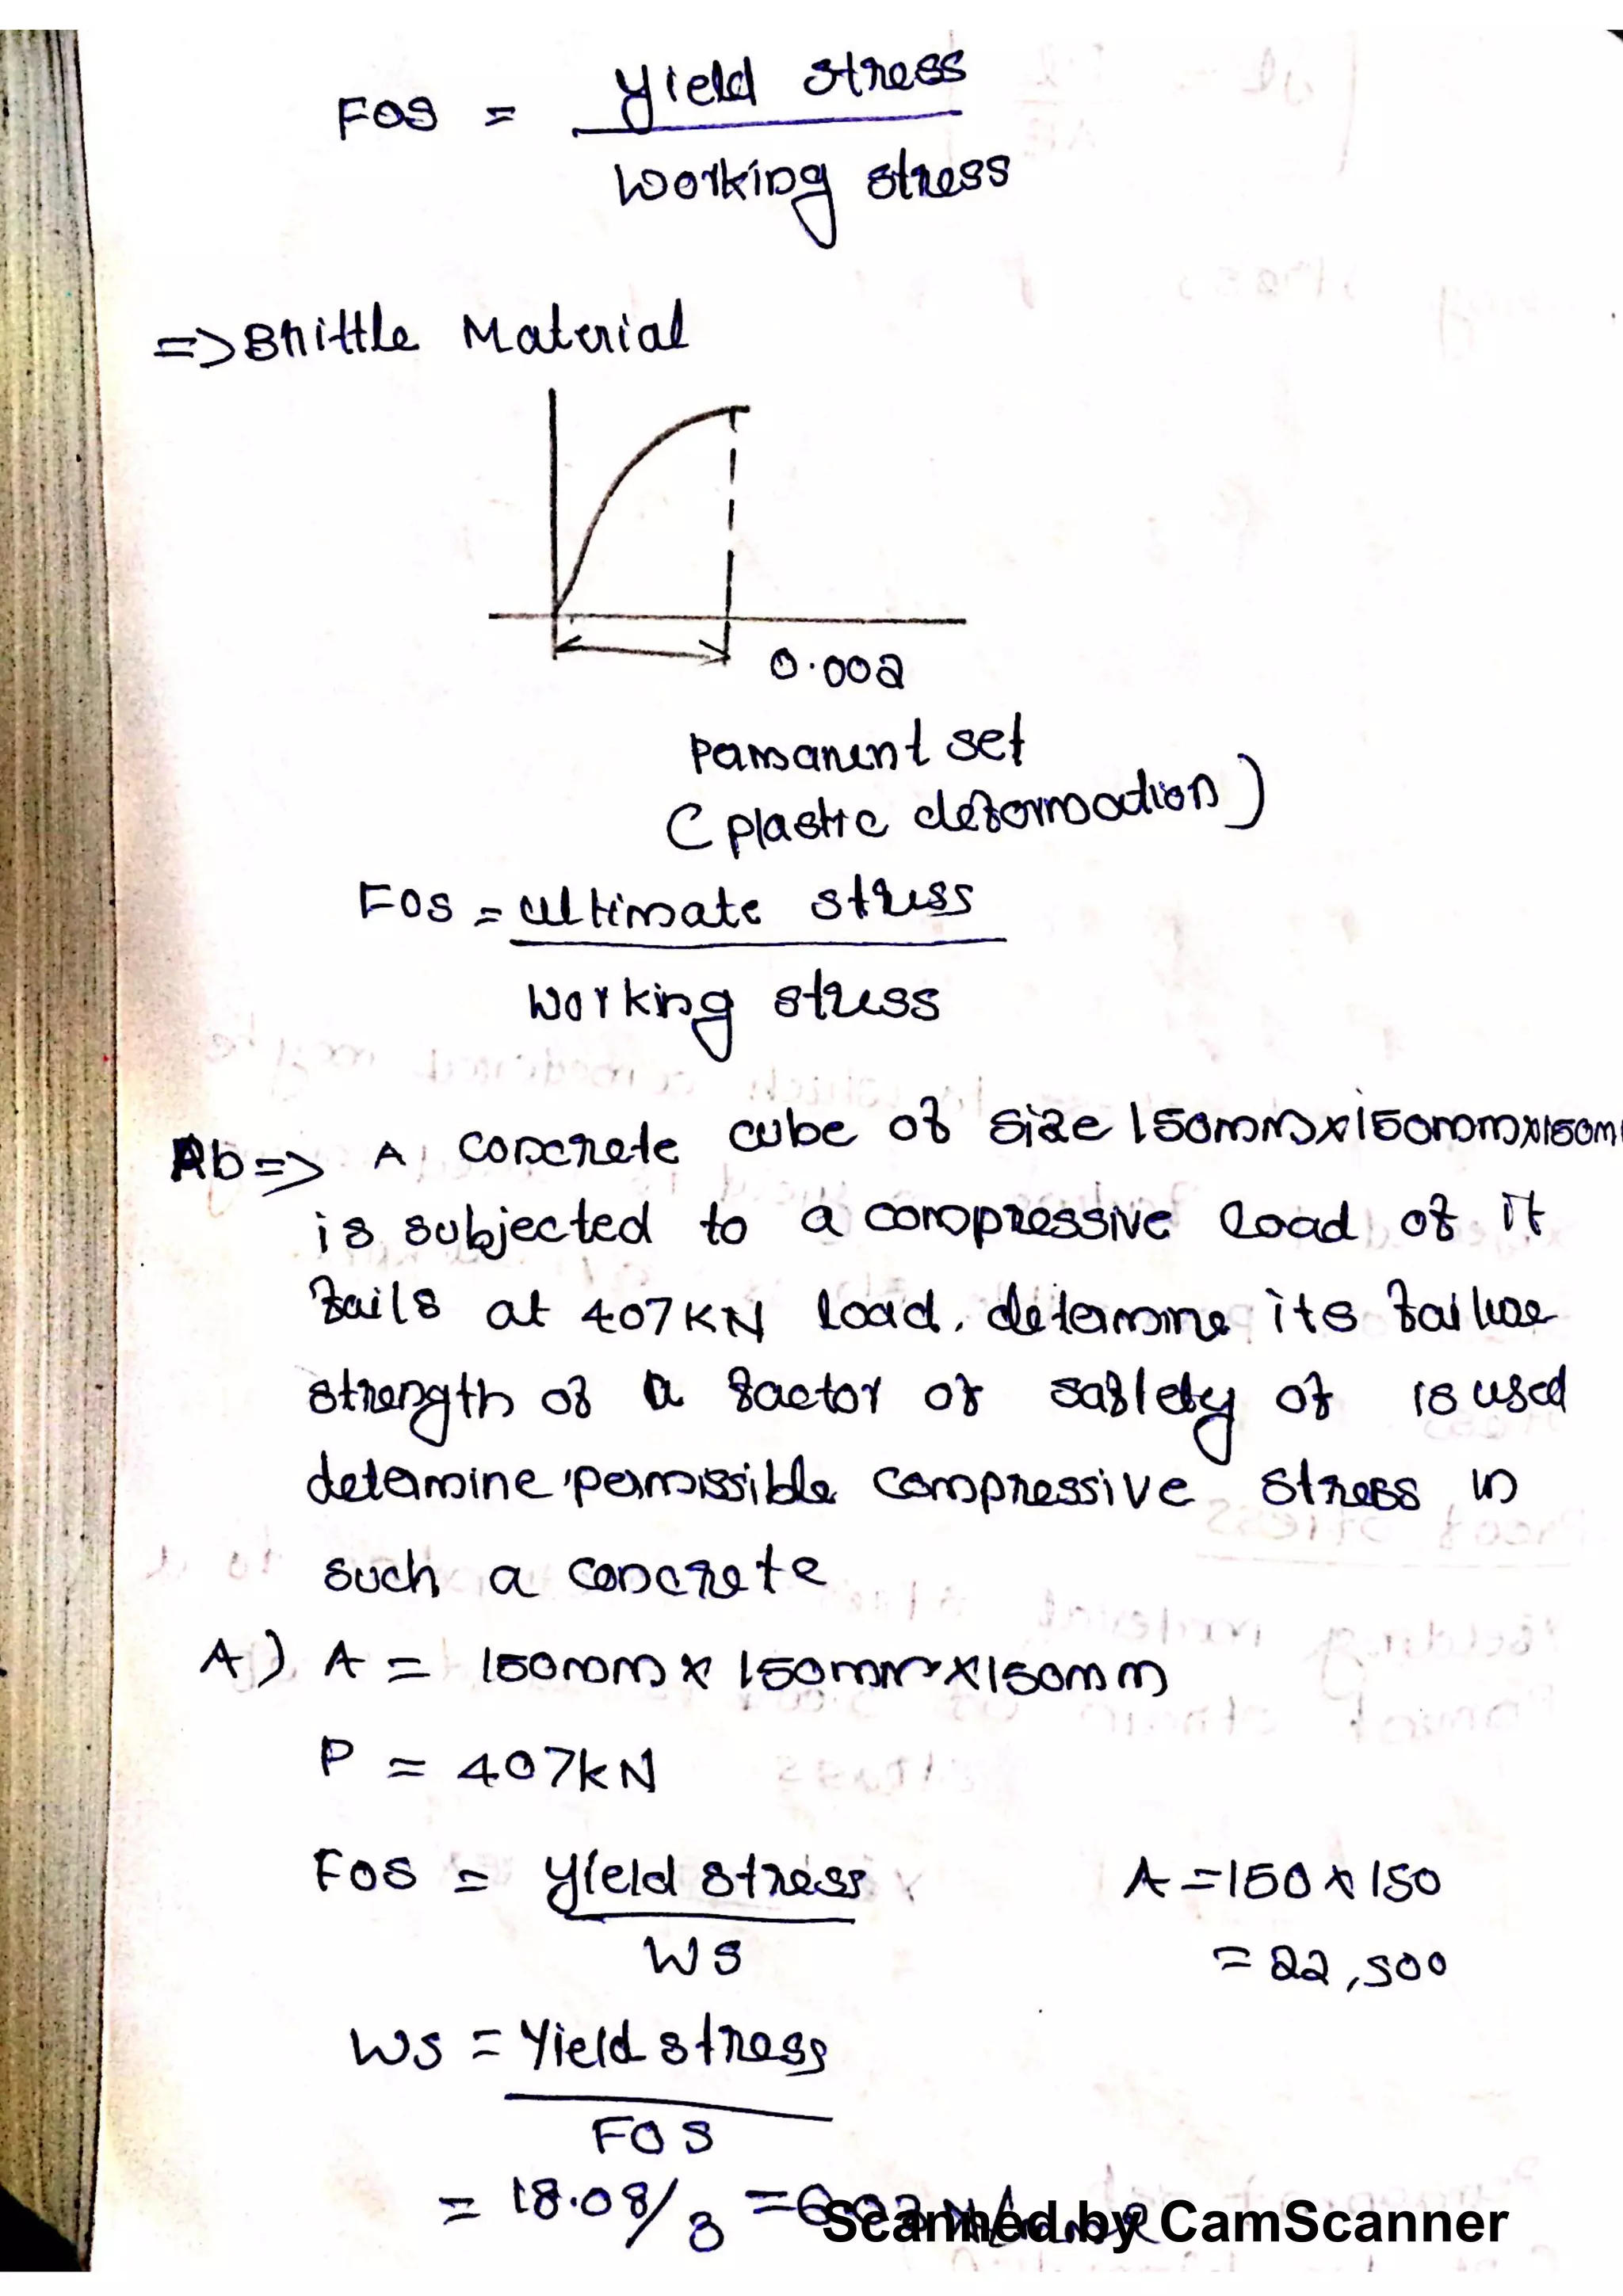 FOS = yield stress
working stress
=> Brittle Material
0.002
Parmanent set
(plastic deformation)
FOS = ultimate stress
working stress
Pb => A concrete cube of size 150mm x 150mm x 150m
is subjected to a compressive load of it
fails at 407KN load. determine its failure
strength of a factor of saflety of is used
determine permissible compressive stress in
such a concrete
A) A = 150mm x 150mm x 150mm
P = 407kN
FOS = yield stress
WS
A = 150 x 150
= 22,500
WS = Yield stress
FOS
= 18.08/3 =
Scanned by CamScanner